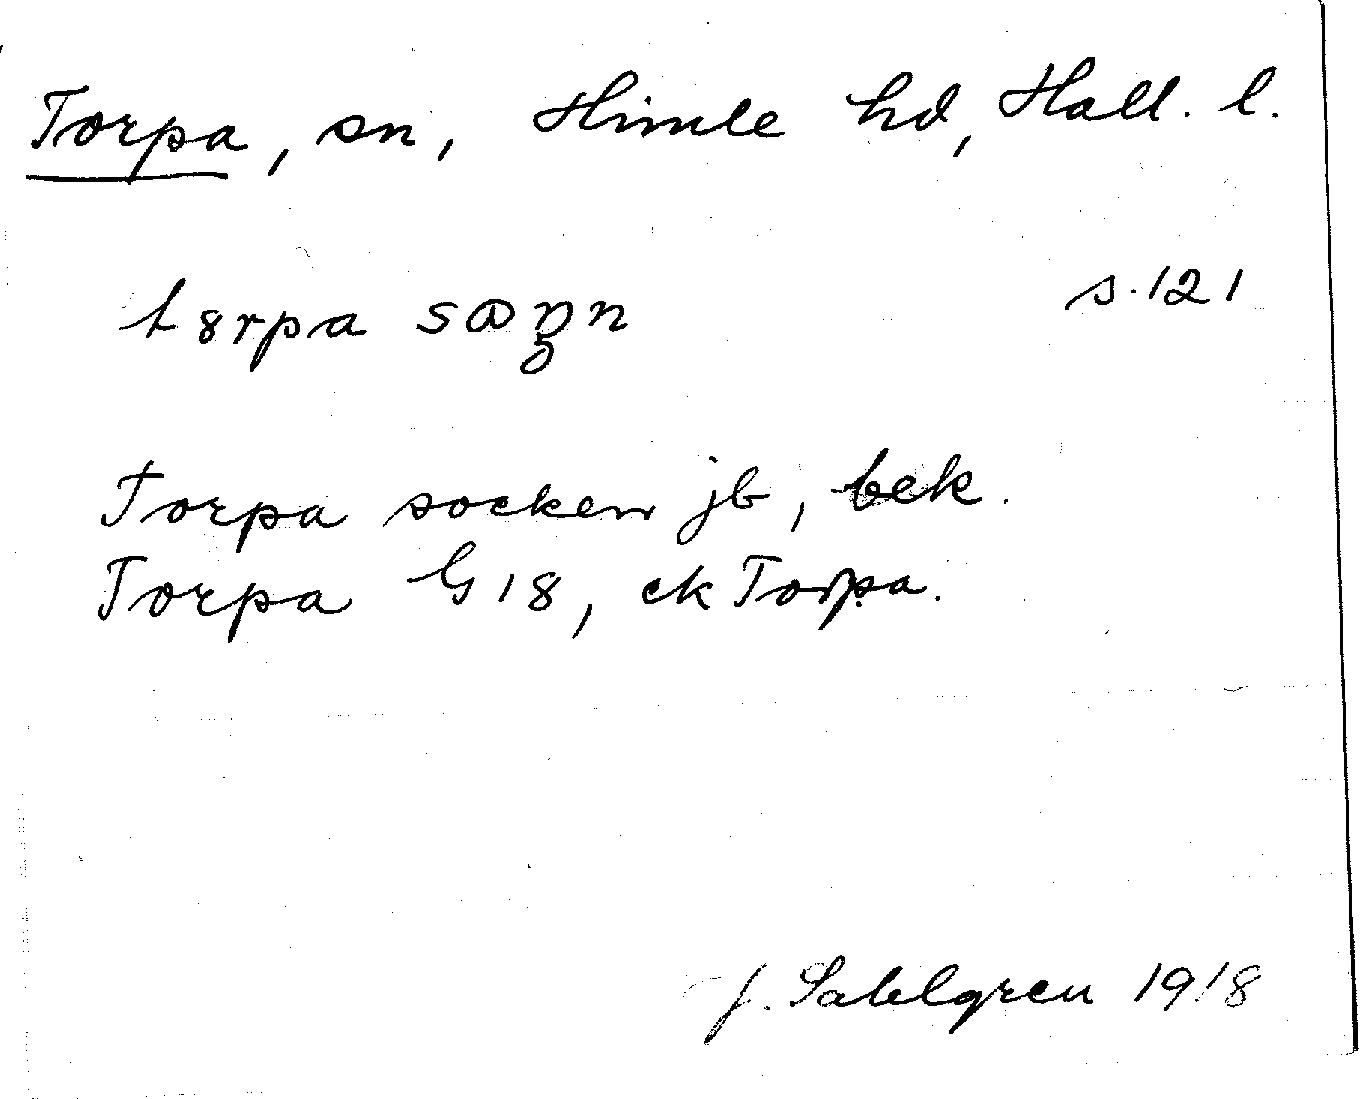 Torpa, sn, Himle hd, Hall. l.
s. 121
Torpa socken jb, bek.
Torpa G 18, ek Torpa.
J. Sahlgren 1918